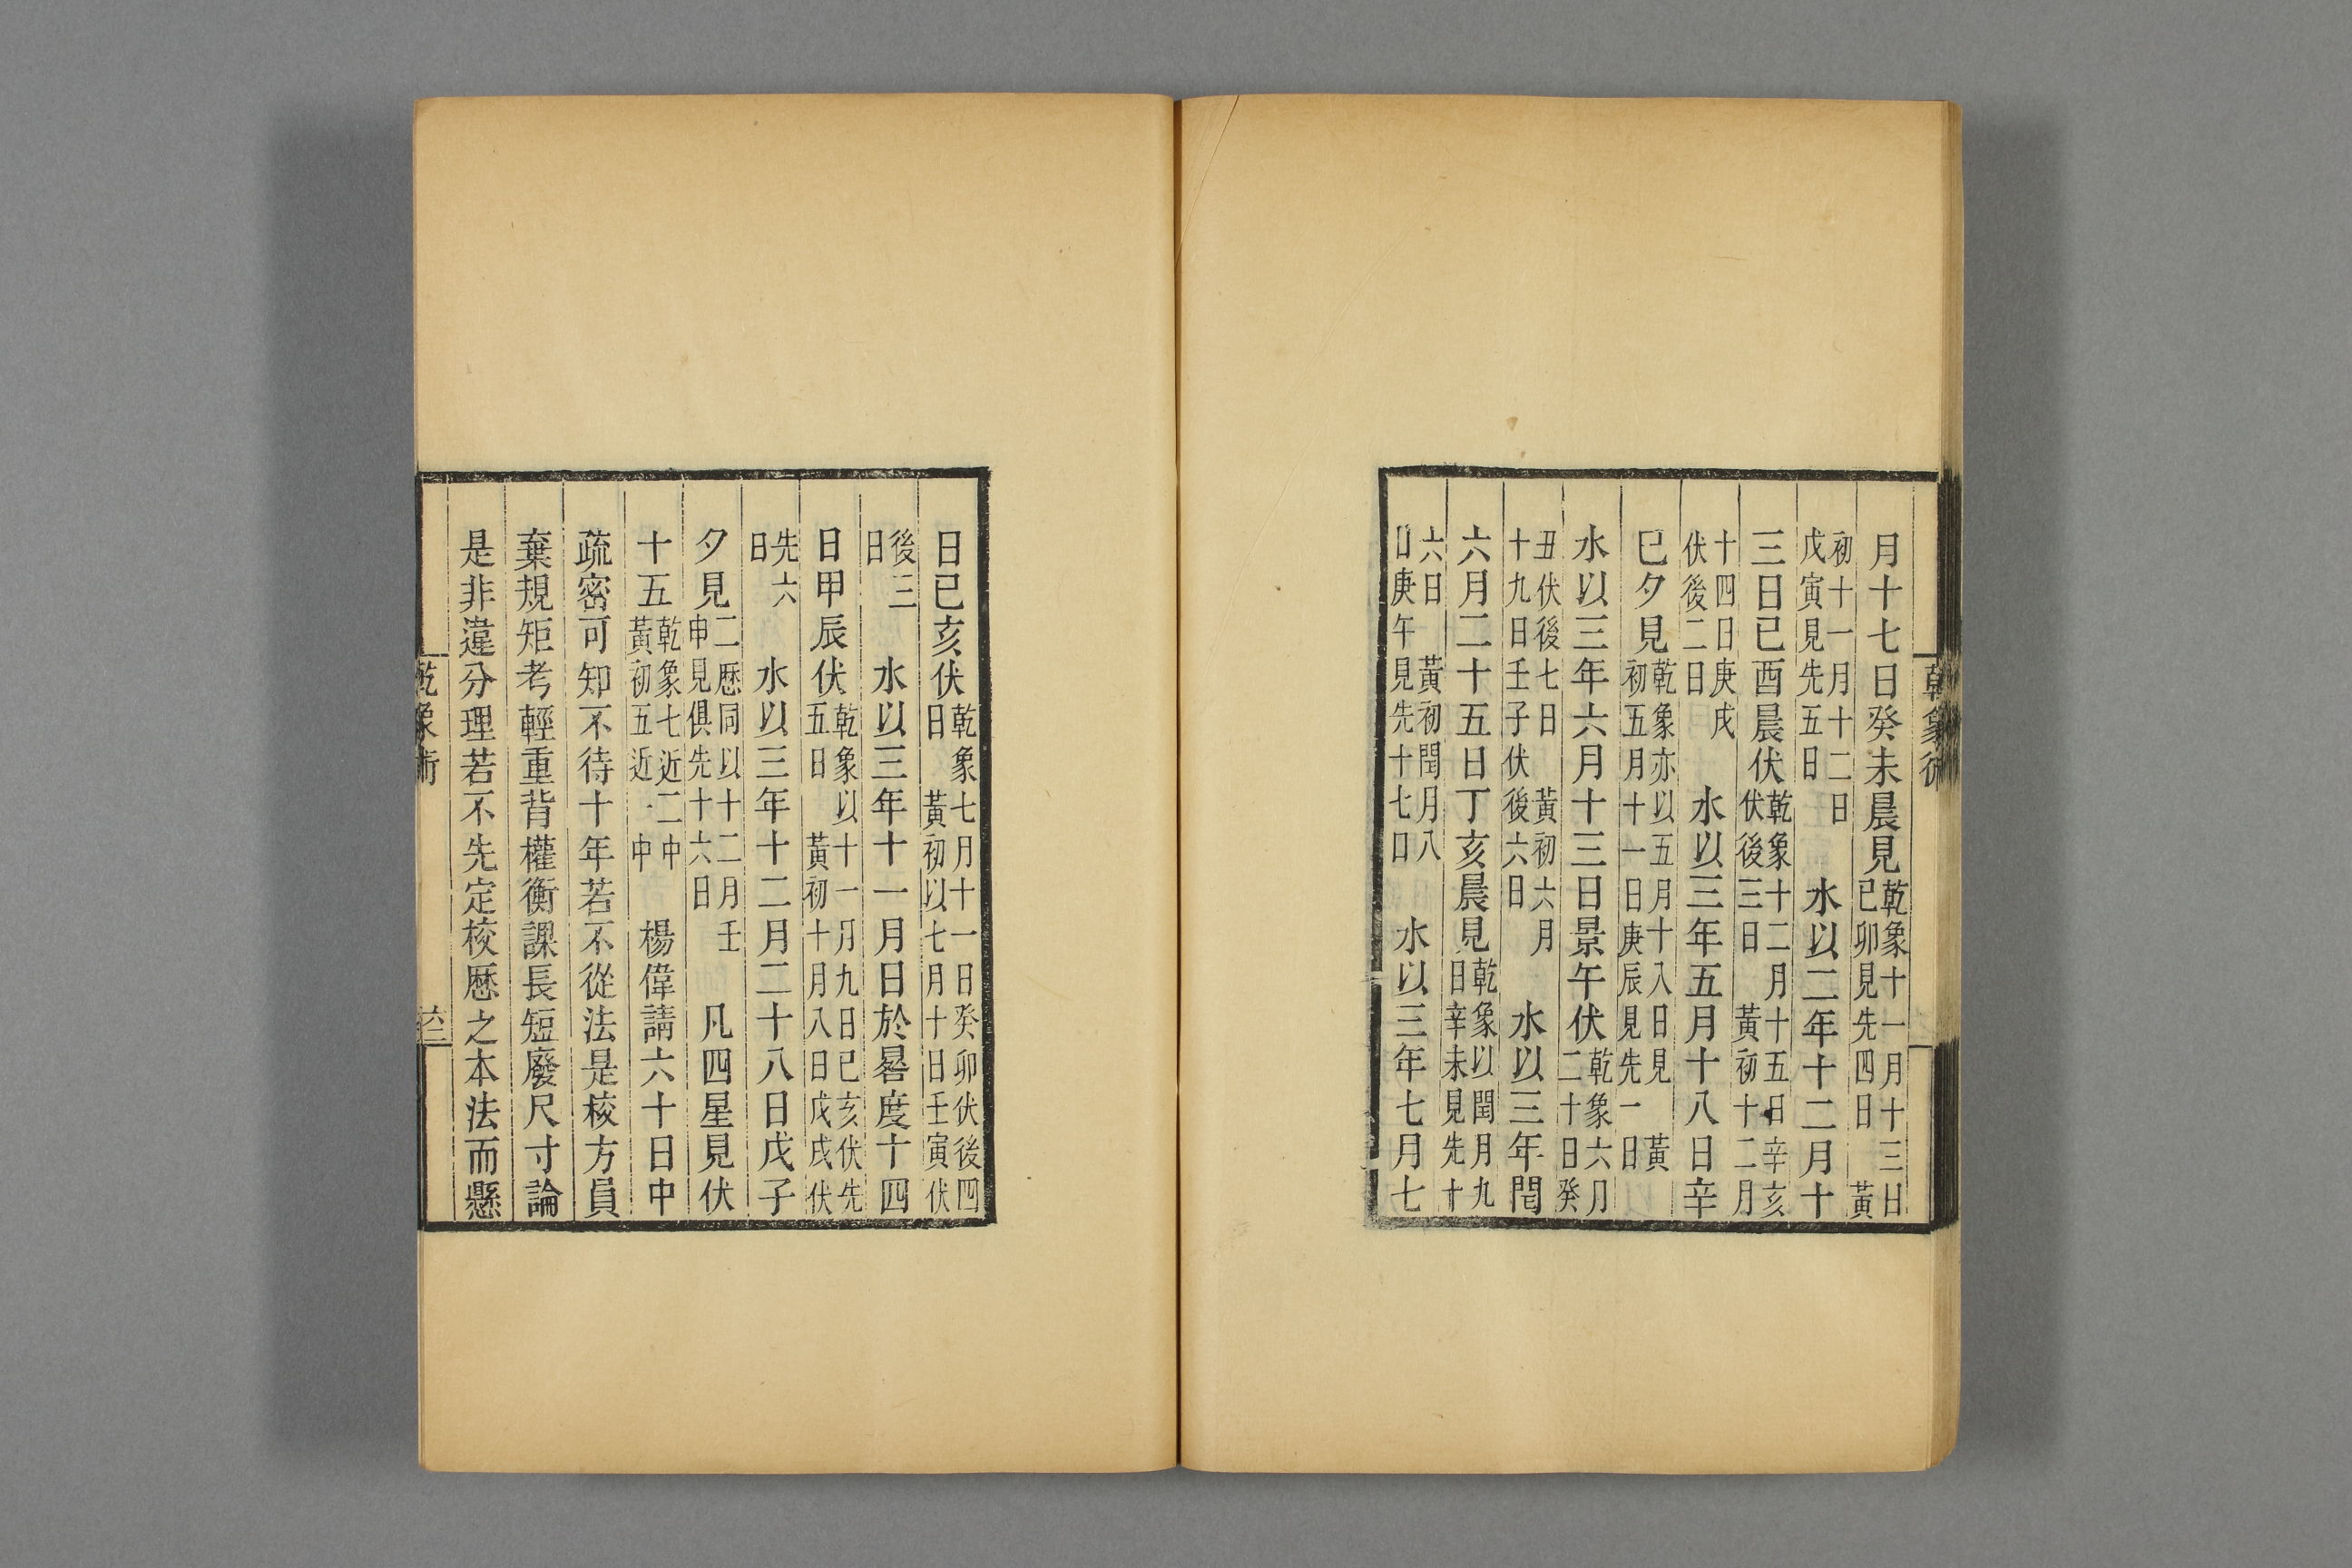 乾象術
月十七日癸未晨見乾象十一月十三日黃
己卯見先四日
初十一月十二日水以二年十二月十
戊寅見先五日
三日己酉晨伏乾象十二月十五日辛亥
伏後三日黃初十二月
十四日庚戌水以三年五月十八日辛
伏後二日
巳夕見乾象亦以五月十八日見黃
初五月十一日庚辰見先一日
水以三年六月十三日景午伏乾象六月
二十日癸
丑伏後七日黃初六月水以三年閏
十九日壬子伏後六日
六月二十五日丁亥晨見乾象以閏月九
日辛未見先十
六日黃初閏月八水以三年七月七
日庚午見先十七日
日己亥伏乾象七月十一日癸卯伏後四
日黃初以七月十日壬寅伏
後三日水以三年十一月日於晷度十四
日甲辰伏乾象以十一月九日己亥伏先
五日黃初十月八日戊戌伏
先六日水以三年十二月二十八日戊子
夕見二歷同以十二月壬
申見俱先十六日凡四星見伏
十五乾象七近二中
黃初五近一中楊偉請六十日中
疏密可知不待十年若不從法是校方員
棄規矩考輕重背權衡課長短廢尺寸論
是非違分理若不先定校歷之本法而懸
乾象術